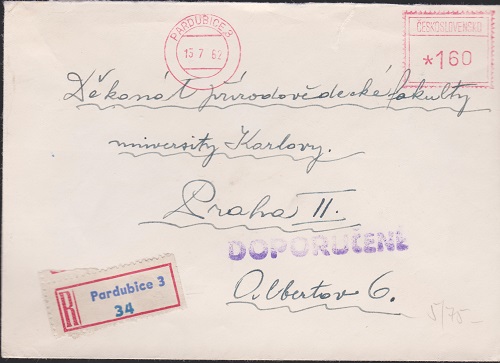 PARDUBICE 3
15.7.62
ČESKOSLOVENSKO
*160
Děkanát přírodovědecké fakulty
university Karlovy.
Praha II.
DOPORUČENĚ
Albertov 6.
R
Pardubice 3
34
5/75-